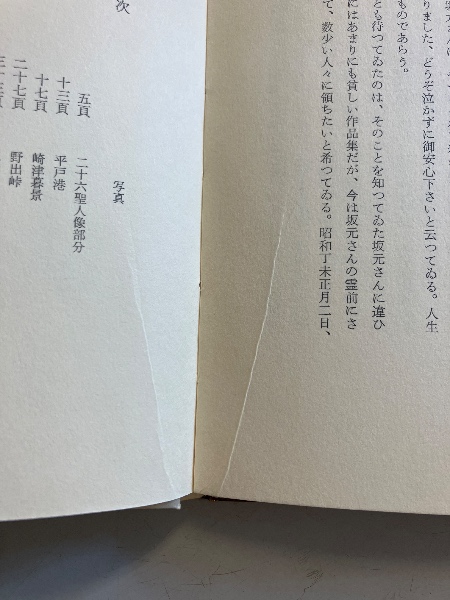 りました、どうぞ泣かずに御安心下さいと云つてゐる。人生
ものであらう。
とも待つてゐたのは、そのことを知つてゐた坂元さんに違ひ
にはあまりにも貧しい作品集だが、今は坂元さんの霊前にさ
て、数少い人々に頒ちたいと希つてゐる。昭和丁未正月二日、
次
写真
五頁 二十六聖人像部分
十三頁 平戸港
十七頁 崎津暮景
二十七頁 野出峠